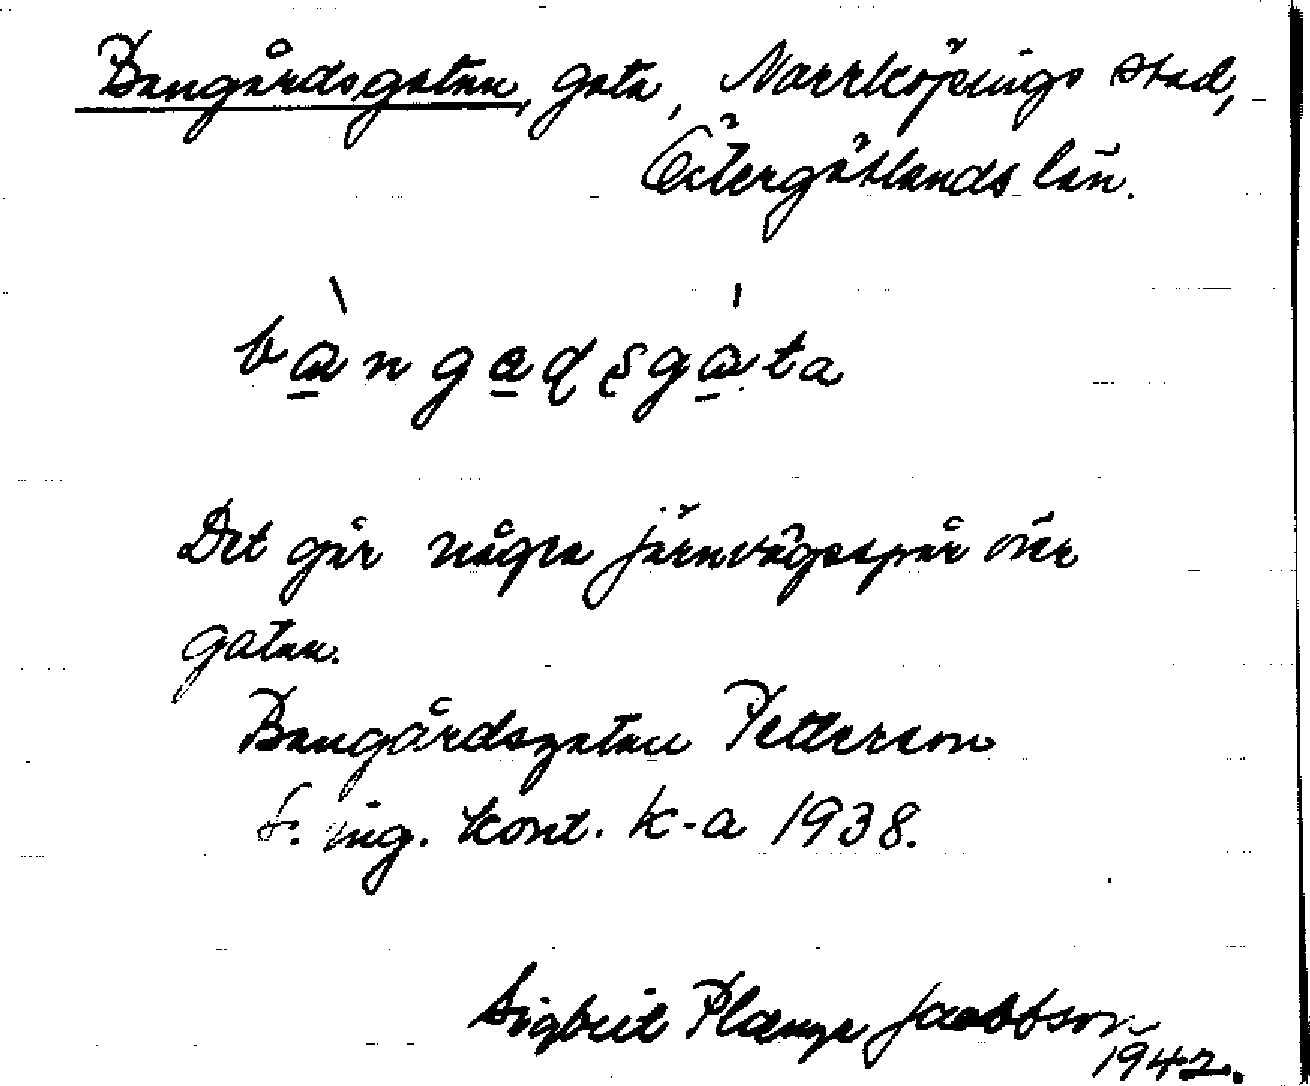 Bangårdsgatan, gata, Norrköpings stad,
Östergötlands län.
bàngadsgáta
Det går några järnvägsspår över
gatan.
Bangårdsgatan Petterson
f. ing. kont. k-a 1938.
Sigbrit Plænge Jacobson
1942.